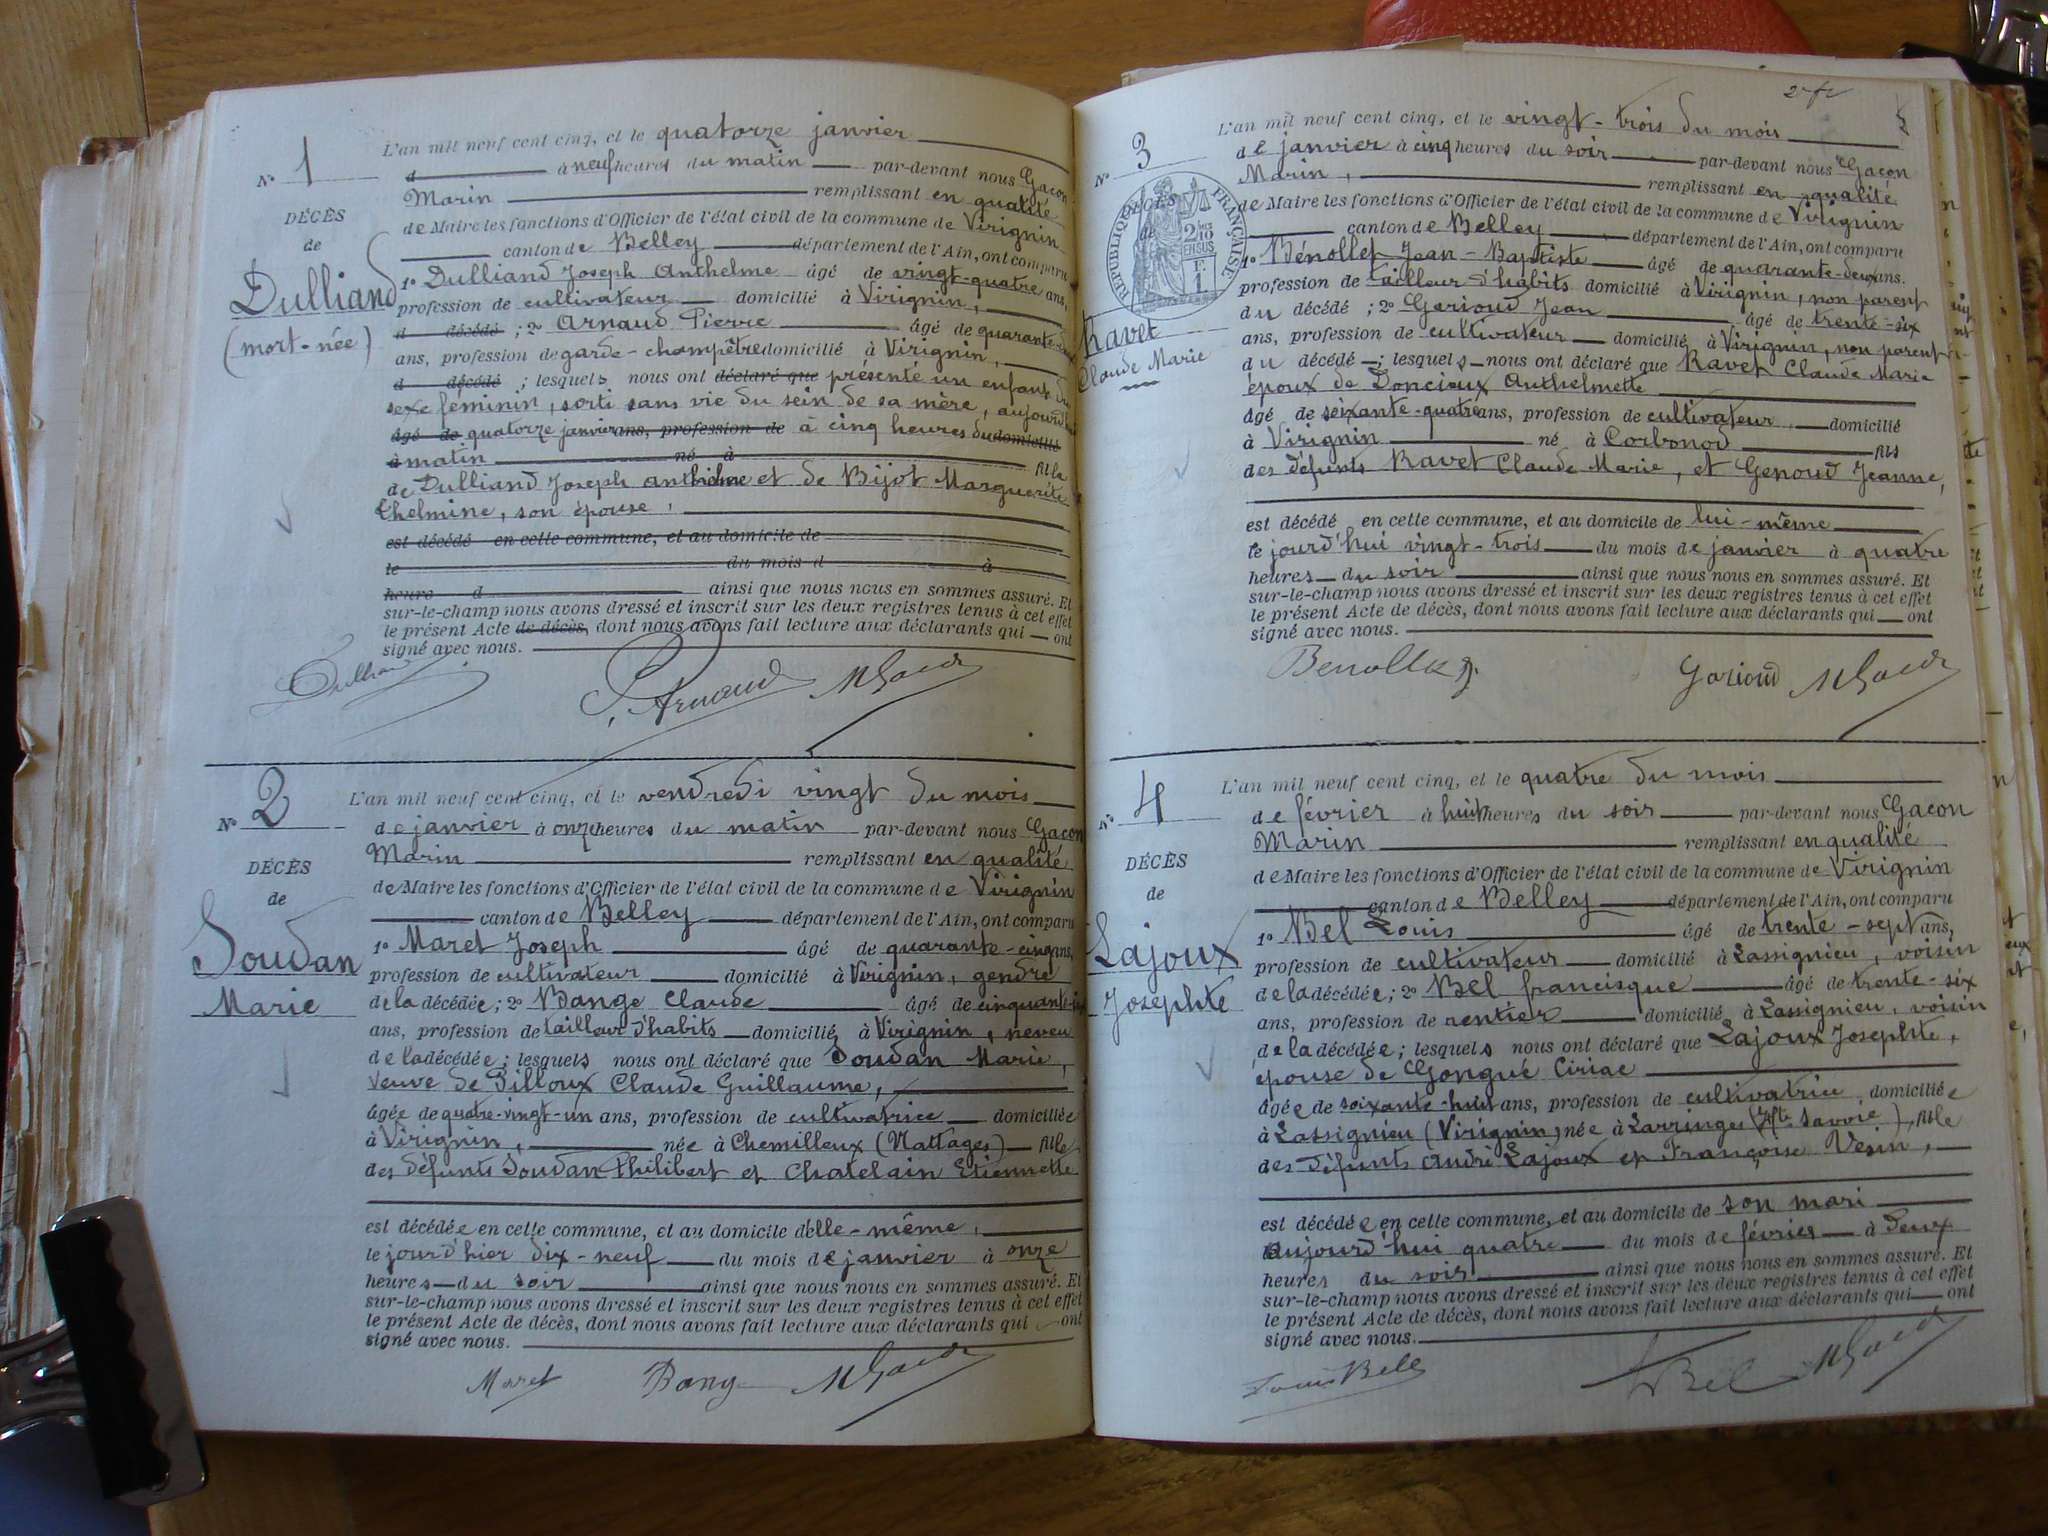 N° 1
DÉCÈS
de
Dulliand
(mort-née)
L'an mil neuf cent cinq, et le quatorze janvier
d à neuf heures du matin par-devant nous Gacon
Marin remplissant en qualité
de Maire les fonctions d'Officier de l'état civil de la commune de Virignin
canton de Belley département de l'Ain, ont comparu
1° Dulliand Joseph Anthelme âgé de vingt-quatre ans,
profession de cultivateur domicilié à Virignin,
d décédé ; 2° Arnaud Pierre âgé de quarante-
ans, profession de garde-champêtre domicilié à Virignin,
d décédé ; lesquels nous ont déclaré que présenté un enfant du
sexe féminin, sorti sans vie du sein de sa mère, aujourd'hui
âgé de quatorze janvier ans, profession de à cinq heures du domicilié
à matin né à fille
de Dulliand Joseph anthelme et de Bijot Marguerite
thelmine, son épouse,
est décédé en cette commune, et au domicile de
le du mois d à
heure d ainsi que nous nous en sommes assuré. Et
sur-le-champ nous avons dressé et inscrit sur les deux registres tenus à cet effet
le présent Acte de décès, dont nous avons fait lecture aux déclarants qui ont
signé avec nous.
Dulliand P. Arnaud M Gacon
N° 2
DÉCÈS
de
Soudan
Marie
L'an mil neuf cent cinq, et le vendredi vingt du mois
de janvier à onze heures du matin par-devant nous Gacon
Marin remplissant en qualité
de Maire les fonctions d'Officier de l'état civil de la commune de Virignin
canton de Belley département de l'Ain, ont comparu
1° Maret Joseph âgé de quarante-cinq ans,
profession de cultivateur domicilié à Virignin, gendre
de la décédée ; 2° Bange Claude âgé de cinquante-
ans, profession de tailleur d'habits domicilié à Virignin, neveu
de la décédée ; lesquels nous ont déclaré que Soudan Marie,
veuve de Pilloux Claude Guillaume,
âgée de quatre-vingt-un ans, profession de cultivatrice domiciliée
à Virignin, née à Chemilleux (Nattages) fille
des défunts Soudan Philibert et Chatelain Etiennette
est décédée en cette commune, et au domicile d'elle-même,
le jour d'hier dix-neuf du mois de janvier à onze
heures du soir ainsi que nous nous en sommes assuré. Et
sur-le-champ nous avons dressé et inscrit sur les deux registres tenus à cet effet
le présent Acte de décès, dont nous avons fait lecture aux déclarants qui ont
signé avec nous.
Maret Bange M Gacon
N° 3
DÉCÈS
de
RÉPUBLIQUE FRANÇAISE
2/10
EN SUS
Ravet
Claude Marie
L'an mil neuf cent cinq, et le vingt-trois du mois
de janvier à cinq heures du soir par-devant nous Gacon
Marin, remplissant en qualité
de Maire les fonctions d'Officier de l'état civil de la commune de Virignin
canton de Belley département de l'Ain, ont comparu
1° Bénollet Jean-Baptiste âgé de quarante-deux ans.
profession de tailleur d'habits domicilié à Virignin, non parent
du décédé ; 2° Gorioud Jean âgé de trente-six
ans, profession de cultivateur domicilié à Virignin, non parent
du décédé ; lesquels nous ont déclaré que Ravet Claude Marie
époux de Doncieux Anthelmette
âgé de soixante-quatre ans, profession de cultivateur, domicilié
à Virignin né à Corbonod fils
des défunts Ravet Claude Marie, et Genoud Jeanne,
est décédé en cette commune, et au domicile de lui-même
le jourd'hui vingt-trois du mois de janvier à quatre
heures du soir ainsi que nous nous en sommes assuré. Et
sur-le-champ nous avons dressé et inscrit sur les deux registres tenus à cet effet
le présent Acte de décès, dont nous avons fait lecture aux déclarants qui ont
signé avec nous.
Benollet J. Gorioud M Gacon
N° 4
DÉCÈS
de
Lajoux
Josephte
L'an mil neuf cent cinq, et le quatre du mois
de février à huit heures du soir par-devant nous Gacon
Marin remplissant en qualité
de Maire les fonctions d'Officier de l'état civil de la commune de Virignin
canton de Belley département de l'Ain, ont comparu
1° Bel Louis âgé de trente-sept ans,
profession de cultivateur domicilié à Lassignieu, voisin
de la décédée ; 2° Bel francisque âgé de trente-six
ans, profession de rentier domicilié à Lassignieu, voisin
de la décédée ; lesquels nous ont déclaré que Lajoux Josephte,
épouse de Gongué Ciriac
âgée de soixante-huit ans, profession de cultivatrice domiciliée
à Lassignieu (Virignin) née à Larringes (Hte Savoie), fille
des défunts André Lajoux et Françoise Vesin,
est décédée en cette commune, et au domicile de son mari
aujourd'hui quatre du mois de février à deux
heures du soir ainsi que nous nous en sommes assuré. Et
sur-le-champ nous avons dressé et inscrit sur les deux registres tenus à cet effet
le présent Acte de décès, dont nous avons fait lecture aux déclarants qui ont
signé avec nous.
Louis Bel Bel M Gacon